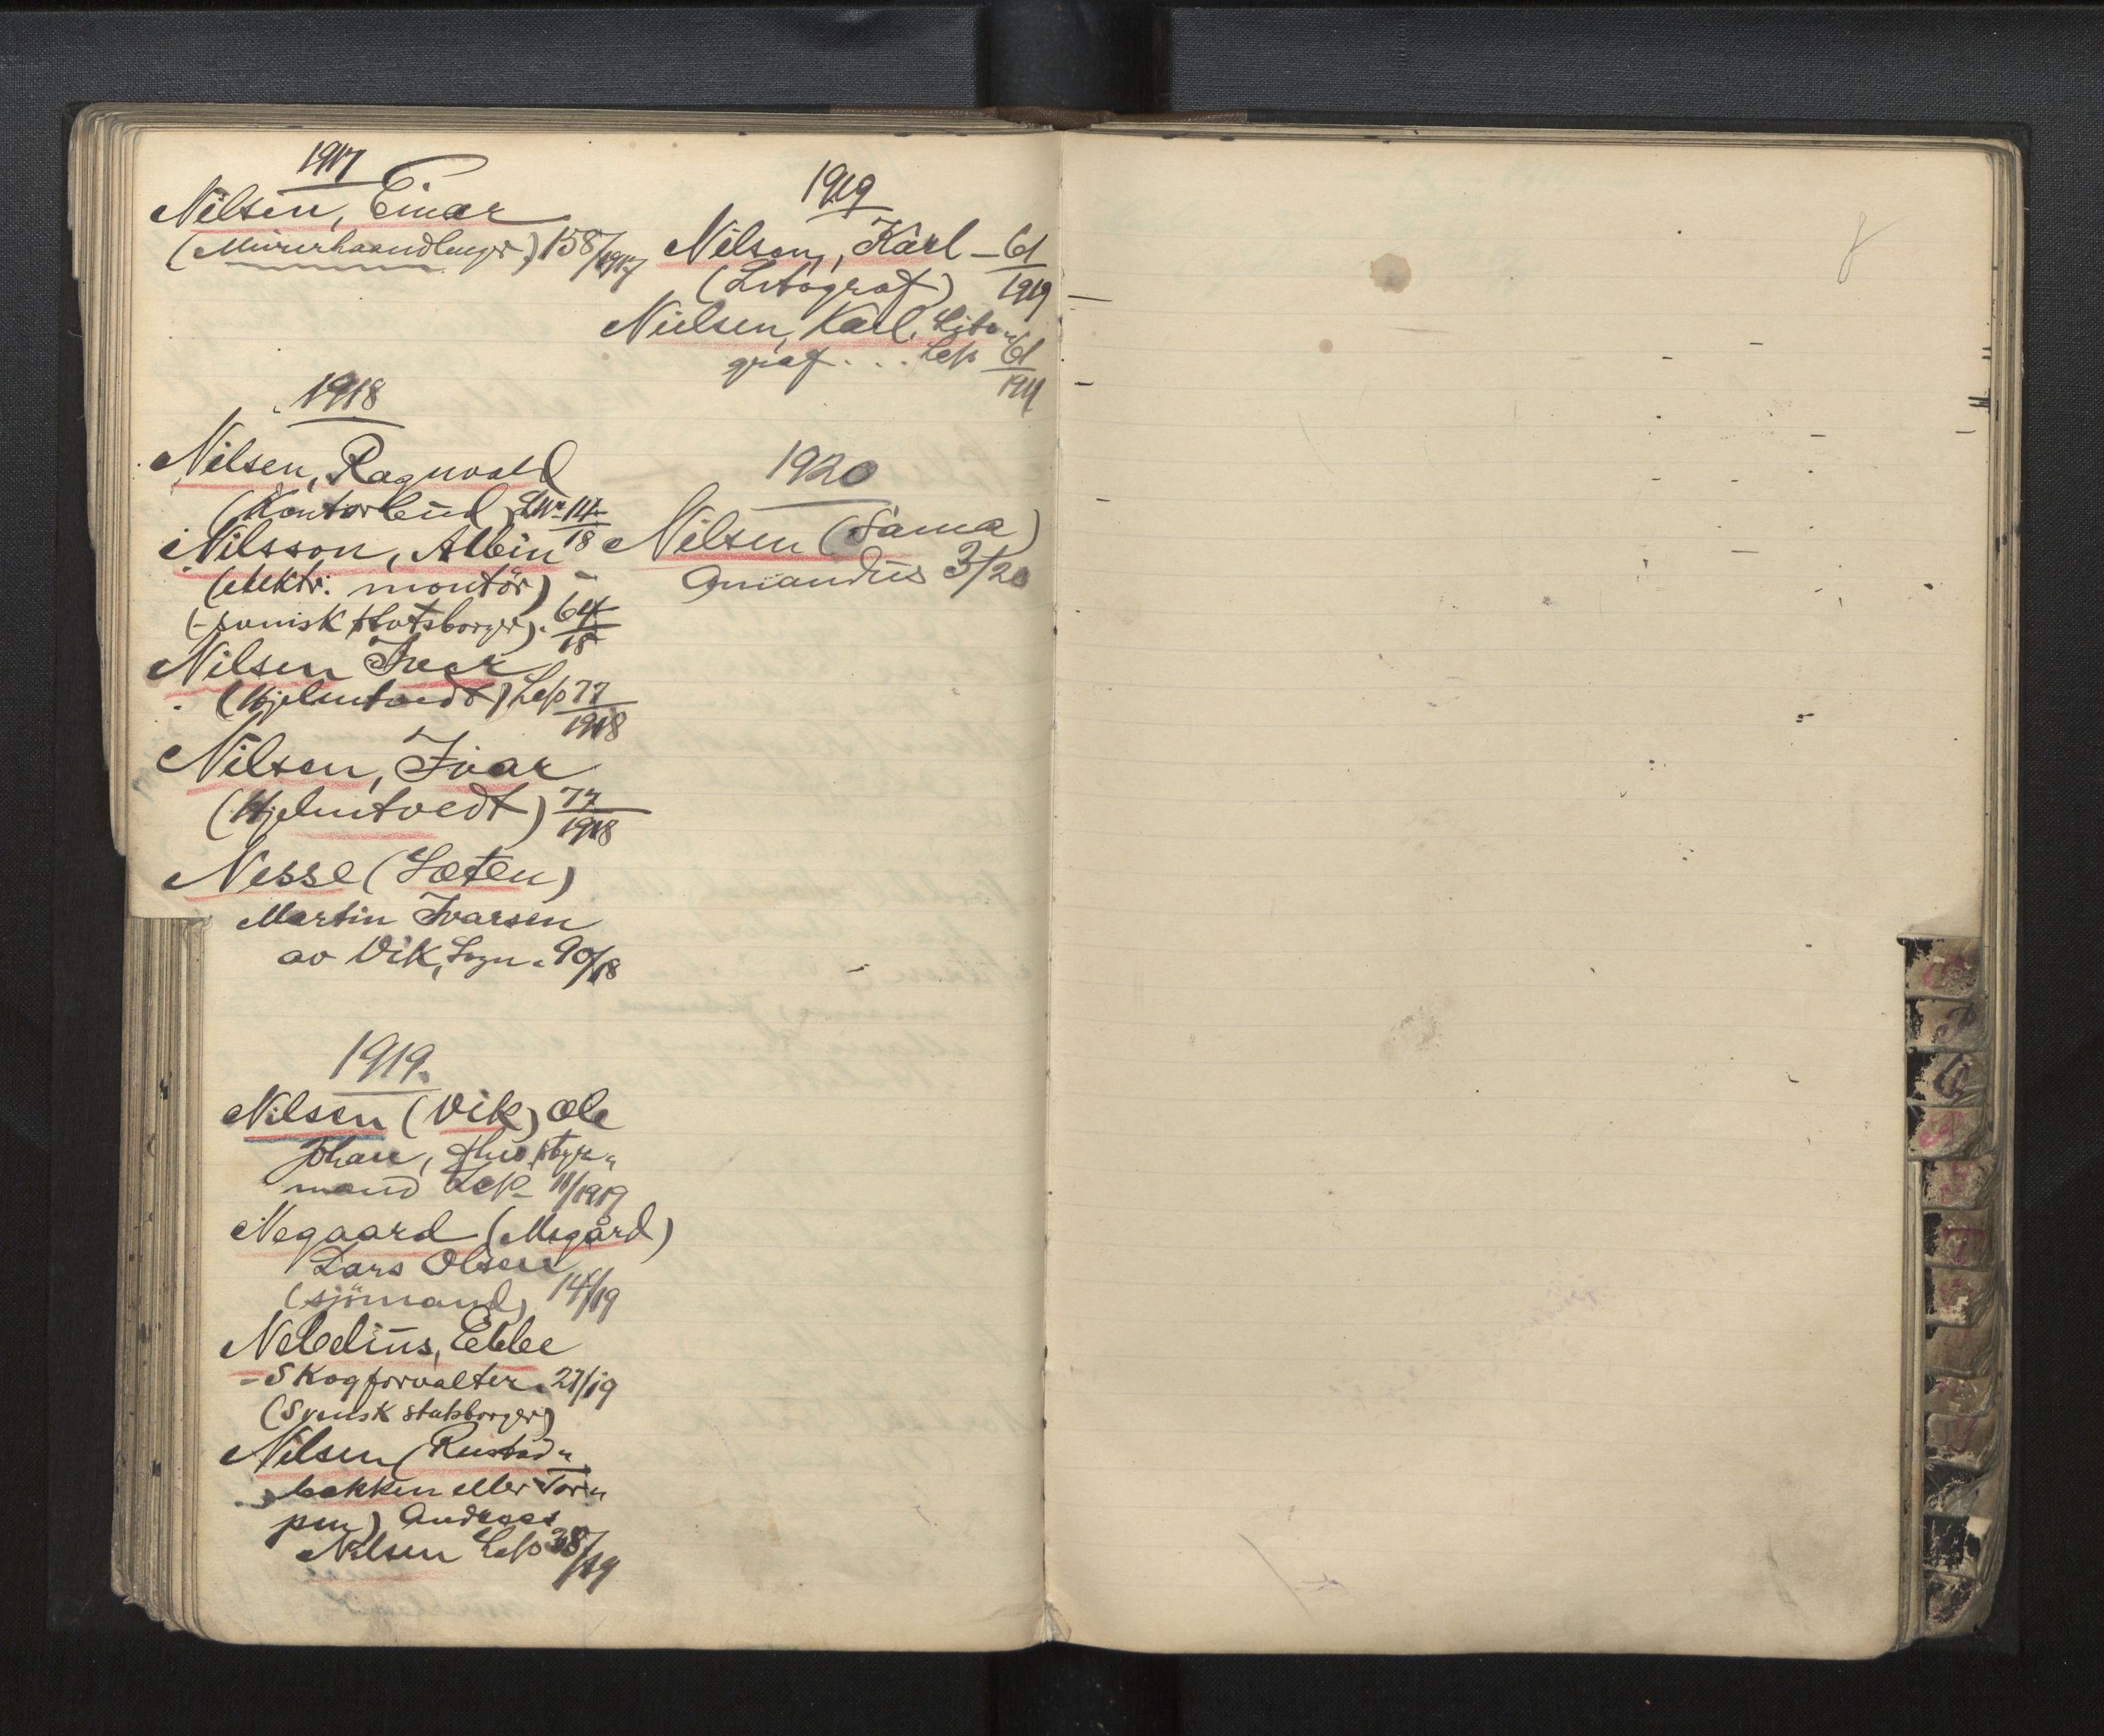 1917
Nilsen, Einar
(Murerhaandlanger) 158/1917
1918
Nilsen, Ragnvald
(Kontorbud) 14/18
Nilsson, Albin
(elektr. montör)
(-svensk statsborger). 64/18
Nilsen Ivar
(Hjelmtvedt) Lep 77/1918
Nilsen, Ivar
(Hjelmtvedt) 77/1918
Nesse (Sæten)
Martin Ivarsen
av Vik, Sogn. 90/18
1919.
Nilsen (Vik) Ole
Johan, styr„
mand Lep 11/1919
Negaard (Megård)
Lars Olsen
(sjömand) 14/19
Nebelius, Ebbe
- Skogforvalter. 27/19
(Svensk statsborger)
Nilsen (Rustad„
bakken eller Tor„
pen) Andreas
Nilsen Lep 38/19
1919
Nilsen, Karl - 61/1919
(Litograf)
Nielsen, Karl, Lito„
graf . . . Lep 61/1919
1920
Nilsen (Sama)
Amandus 3/20